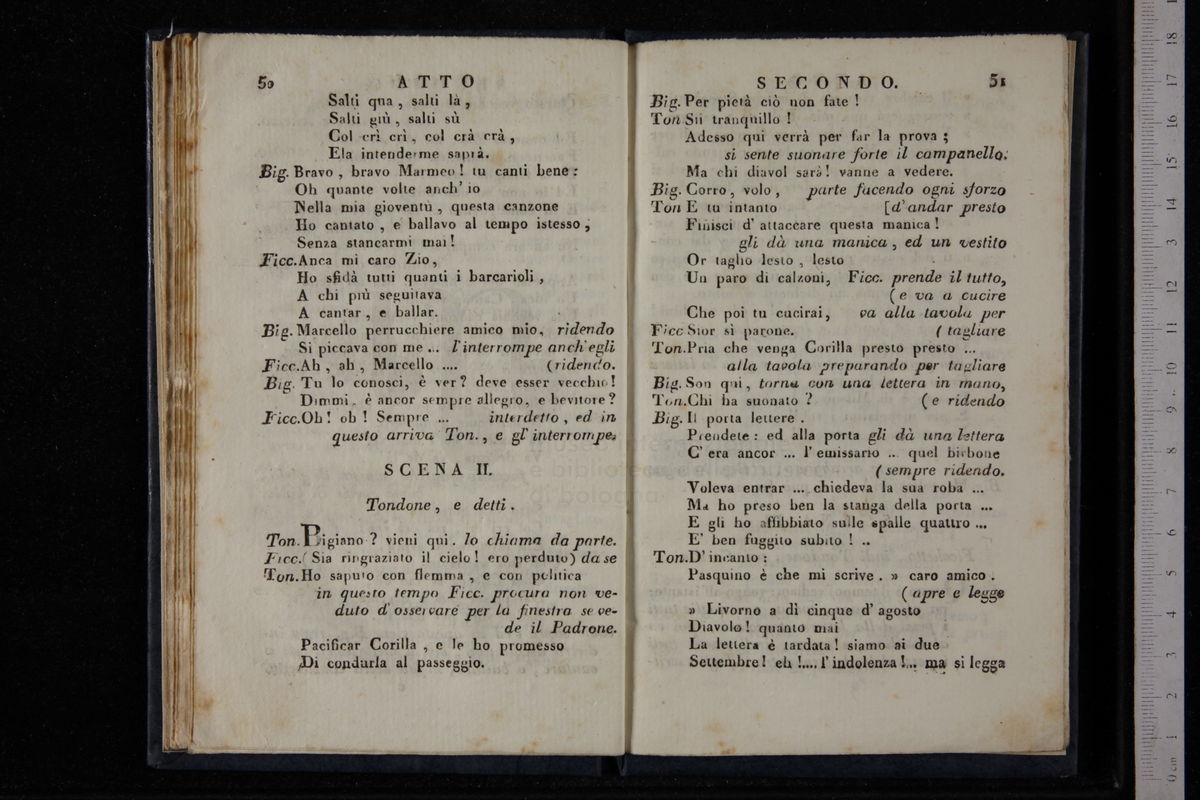 50 ATTO
Salti qua, salti là,
Salti giù, salti sù
Col crì crì, col crà crà,
Ela intenderme saprà.
Big. Bravo, bravo Marmeo! tu canti bene:
Oh quante volte anch' io
Nella mia gioventù, questa canzone
Ho cantato, e ballavo al tempo istesso;
Senza stancarmi mai!
Ficc. Anca mi caro Zio,
Ho sfidà tutti quanti i barcarioli,
A chi più seguitava
A cantar, e ballar.
Big. Marcello perrucchiere amico mio, ridendo
Si piccava con me ... l'interrompe anch'egli
Ficc. Ah, ah, Marcello .... (ridendo.
Big. Tu lo conosci, è ver? deve esser vecchio!
Dimmi, è ancor sempre allegro, e bevitore?
Ficc. Oh! oh! Sempre ... interdetto, ed in
questo arriva Ton., e gl' interrompe.
SCENA II.
Tondone, e detti.
Ton. Bigiano? vieni qui. lo chiama da parte.
Ficc. ( Sia ringraziato il cielo! ero perduto) da se
Ton. Ho saputo con flemma, e con politica
in questo tempo Ficc. procura non ve-
duto d' osservare per la finestra se ve-
de il Padrone.
Pacificar Corilla, e le ho promesso
Di condurla al passeggio.
SECONDO. 51
Big. Per pietà ciò non fate!
Ton Sii tranquillo!
Adesso qui verrà per far la prova;
si sente suonare forte il campanello.
Ma chi diavol sarà! vanne a vedere.
Big. Corro, volo, parte facendo ogni sforzo
Ton E tu intanto [d' andar presto
Finisci d' attaccare questa manica!
gli dà una manica, ed un vestito
Or taglio lesto, lesto
Un paro di calzoni, Ficc. prende il tutto,
(e va a cucire
Che poi tu cucirai, va alla tavola per
Ficc Sior sì parone. ( tagliare
Ton. Pria che venga Corilla presto presto ...
alla tavola preparando per tagliare
Big. Son qui, torna con una lettera in mano,
Ton. Chi ha suonato? (e ridendo
Big. Il porta lettere.
Prendete: ed alla porta gli dà una lettera
C' era ancor ... l' emissario ... quel birbone
(sempre ridendo.
Voleva entrar ... chiedeva la sua roba ...
Ma ho preso ben la stanga della porta ...
E gli ho affibbiato sulle spalle quattro ...
E' ben fuggito subito! ..
Ton. D' incanto:
Pasquino è che mi scrive. » caro amico.
( apre e legge
» Livorno a dì cinque d' agosto
Diavolo! quanto mai
La lettera è tardata! siamo ai due
Settembre! eh !.... l' indolenza !... ma si legga